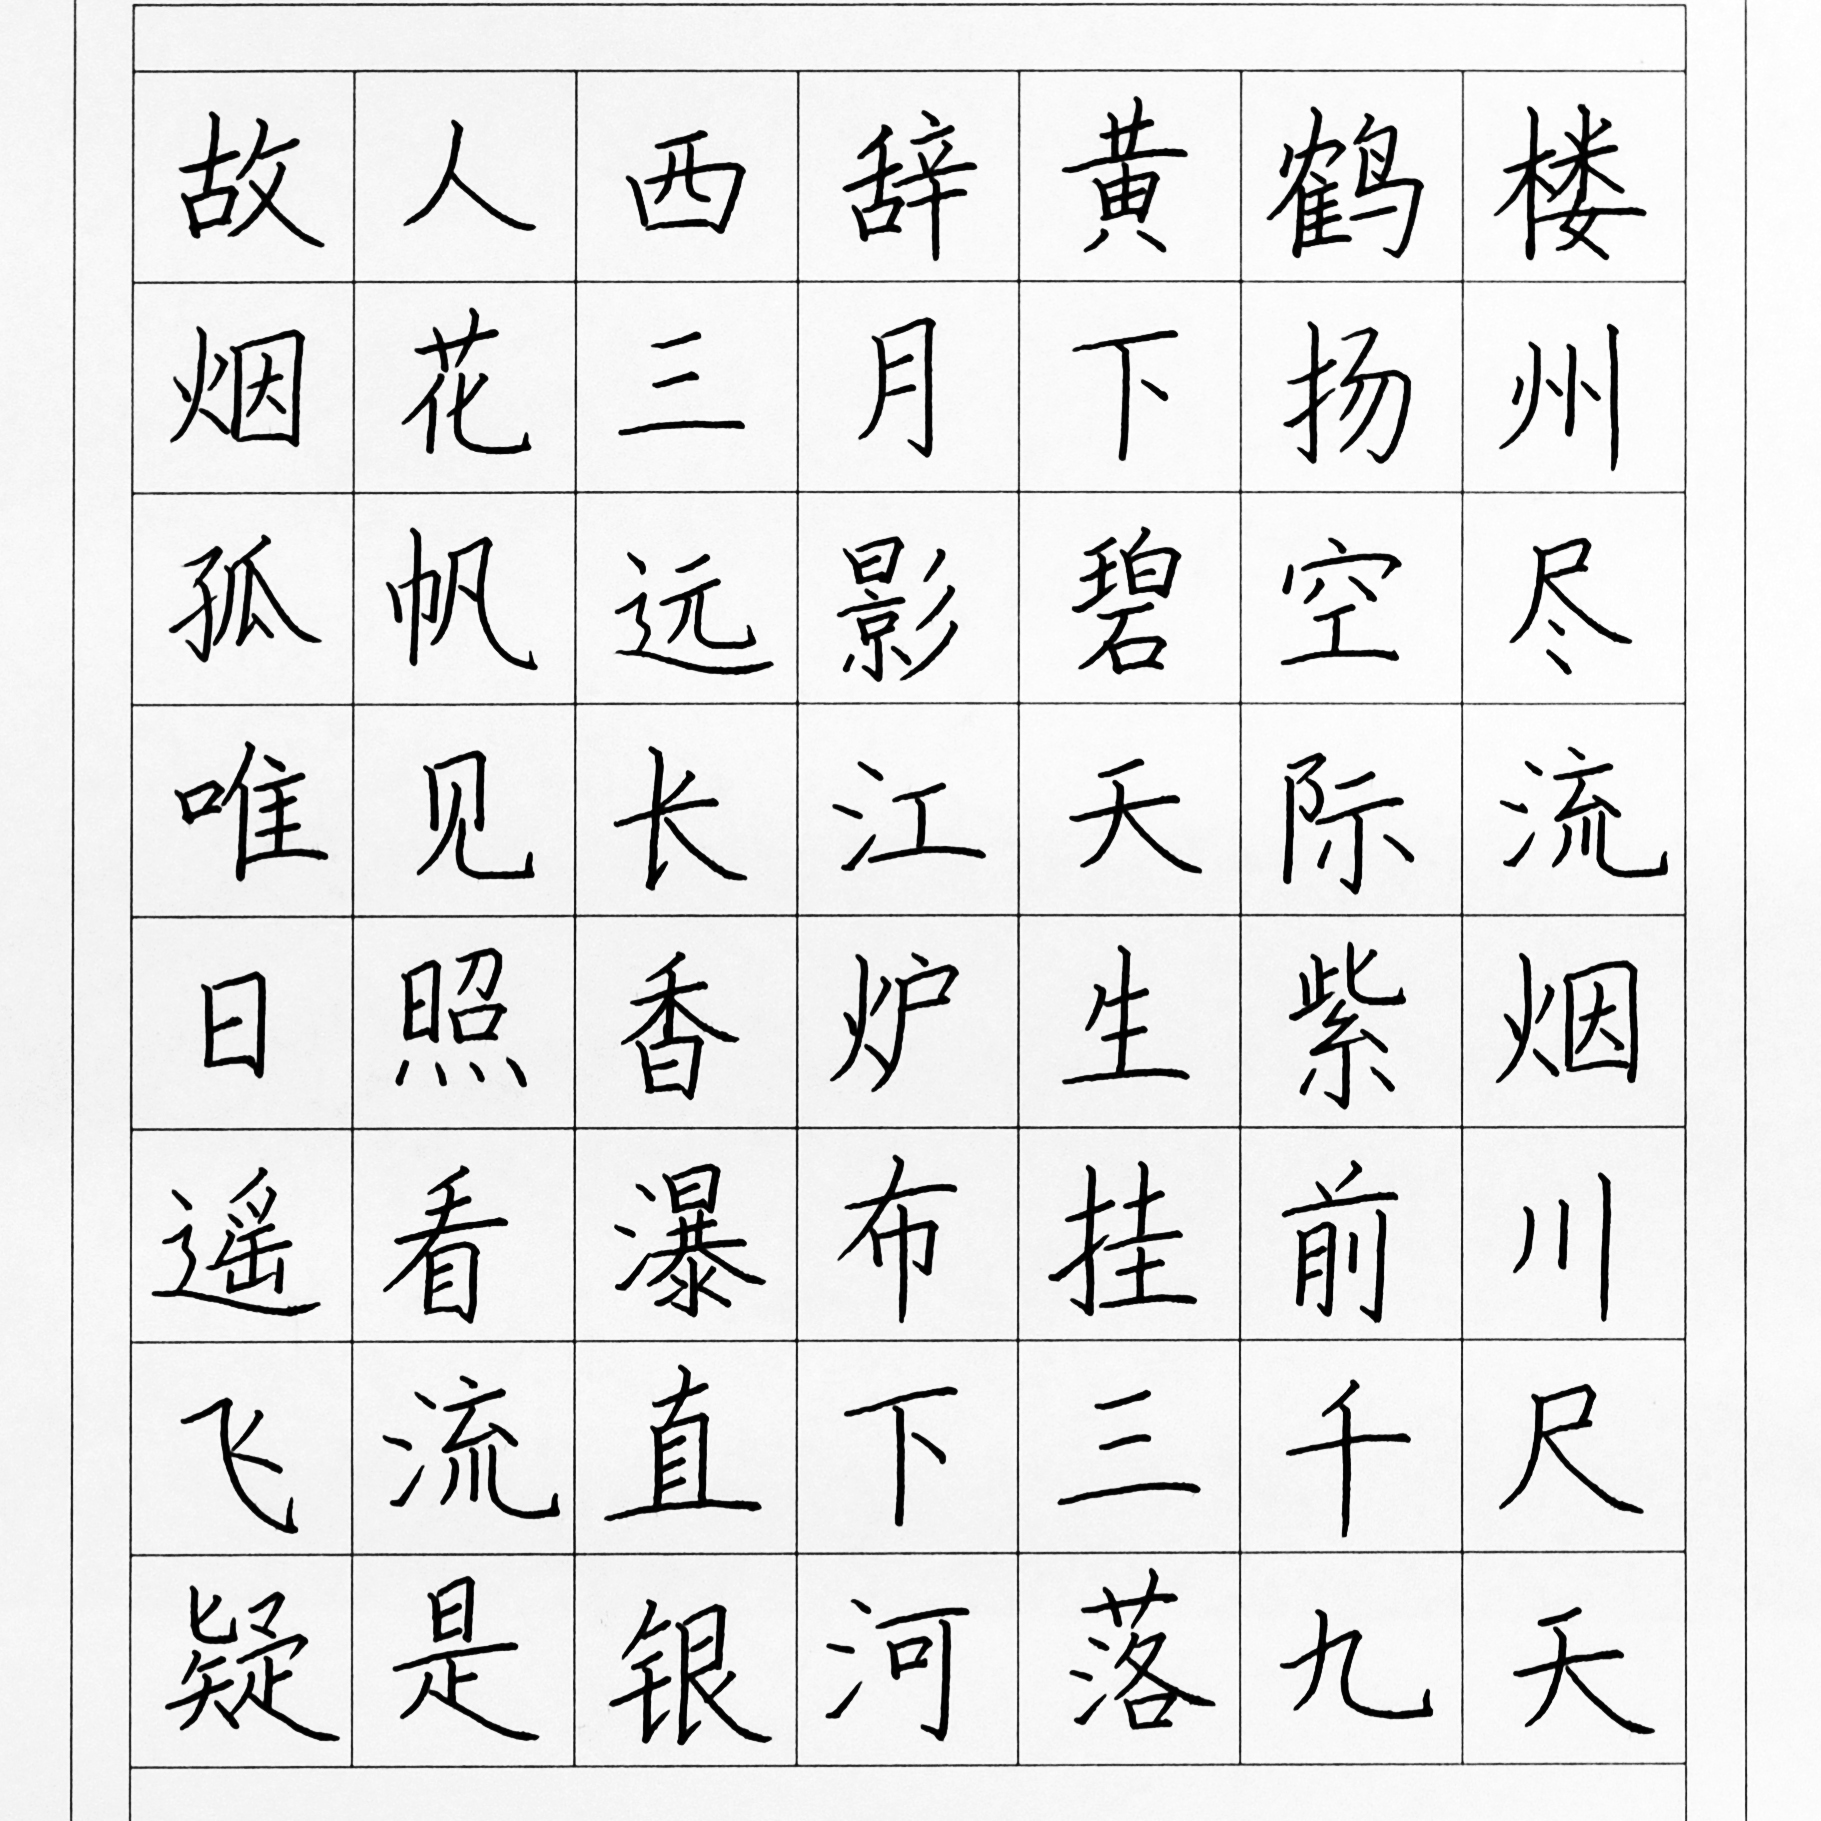 故人西辞黄鹤楼
烟花三月下扬州
孤帆远影碧空尽
唯见长江天际流
日照香炉生紫烟
遥看瀑布挂前川
飞流直下三千尺
疑是银河落九天